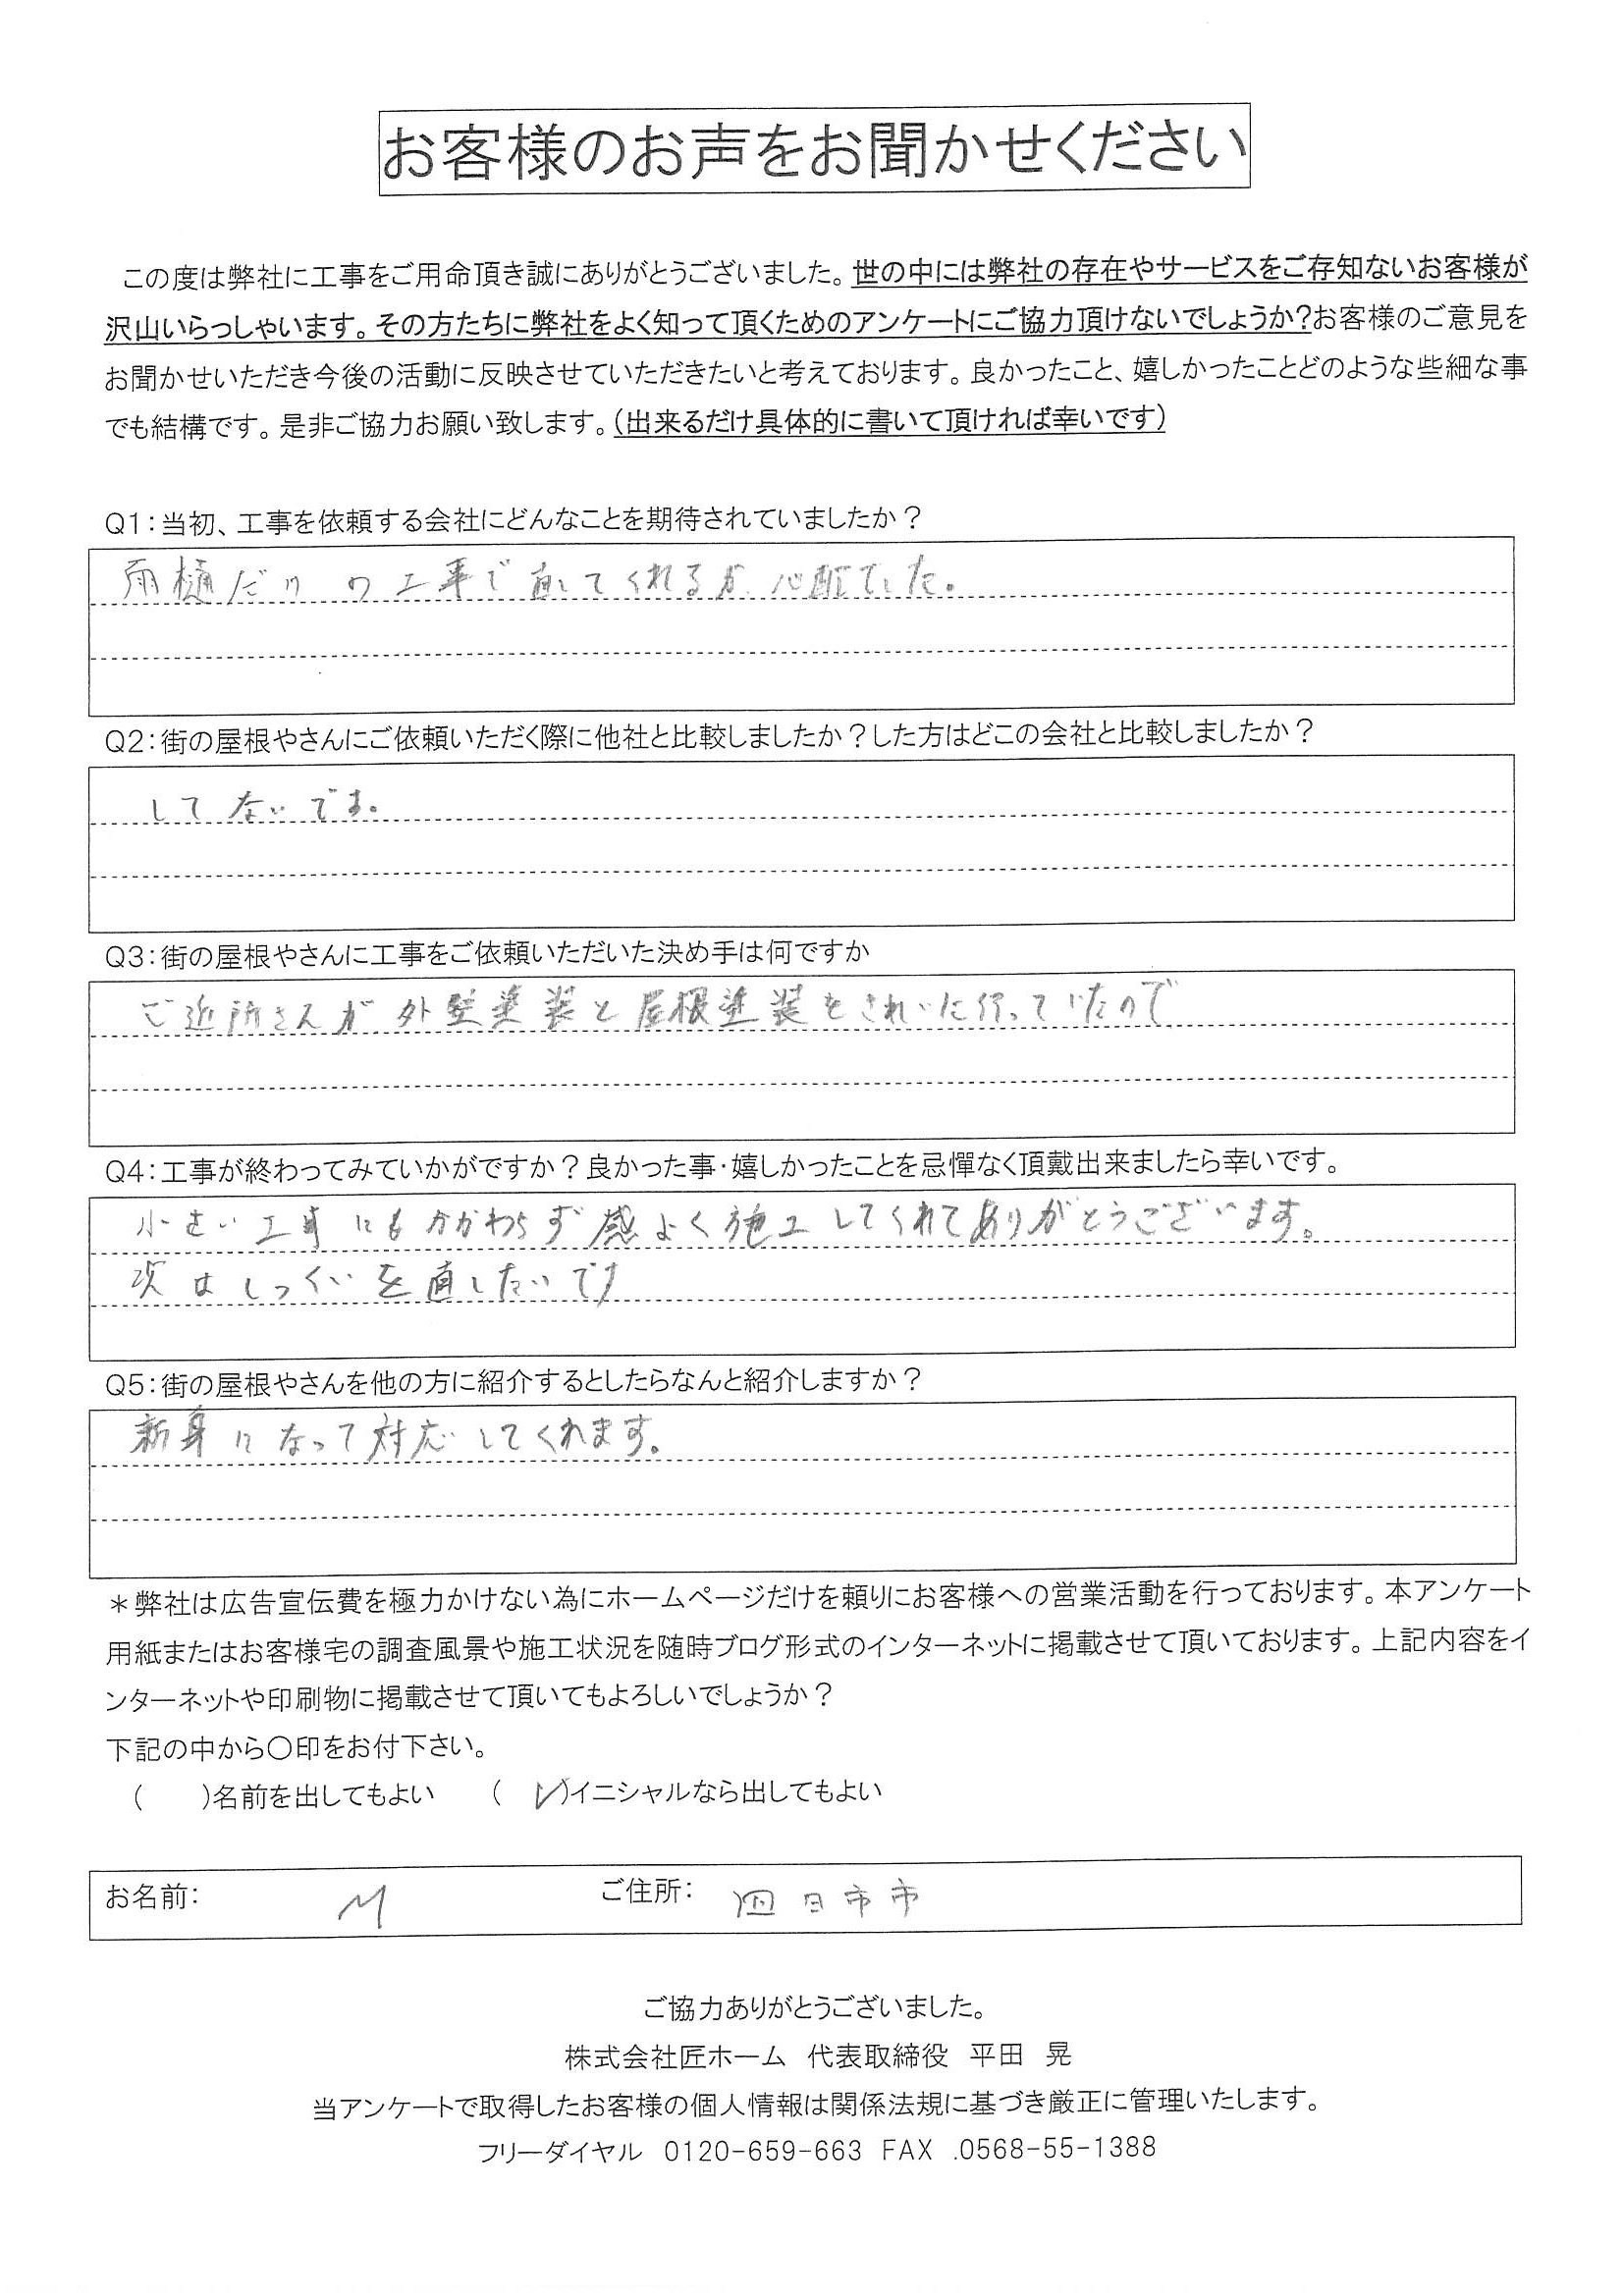 お客様のお声をお聞かせください
この度は弊社に工事をご用命頂き誠にありがとうございました。世の中には弊社の存在やサービスをご存知ないお客様が
沢山いらっしゃいます。その方たちに弊社をよく知って頂くためのアンケートにご協力頂けないでしょうか?お客様のご意見を
お聞かせいただき今後の活動に反映させていただきたいと考えております。良かったこと、嬉しかったことどのような些細な事
でも結構です。是非ご協力お願い致します。(出来るだけ具体的に書いて頂ければ幸いです)
Q1:当初、工事を依頼する会社にどんなことを期待されていましたか?
雨樋だけの工事で直してくれるか心配でした。
Q2:街の屋根やさんにご依頼いただく際に他社と比較しましたか?した方はどこの会社と比較しましたか?
してないです。
Q3:街の屋根やさんに工事をご依頼いただいた決め手は何ですか
ご近所さんが外壁塗装と屋根塗装をきれいに行っていたので
Q4:工事が終わってみていかがですか?良かった事・嬉しかったことを忌憚なく頂戴出来ましたら幸いです。
小さい工事にもかかわらず感よく施工してくれてありがとうございます。
次はしっくいを直したいです
Q5:街の屋根やさんを他の方に紹介するとしたらなんと紹介しますか?
新身になって対応してくれます。
*弊社は広告宣伝費を極力かけない為にホームページだけを頼りにお客様への営業活動を行っております。本アンケート
用紙またはお客様宅の調査風景や施工状況を随時ブログ形式のインターネットに掲載させて頂いております。上記内容をイ
ンターネットや印刷物に掲載させて頂いてもよろしいでしょうか?
下記の中から〇印をお付下さい。
(　　)名前を出してもよい　　(　✓)イニシャルなら出してもよい
お名前: M ご住所: 四日市市
ご協力ありがとうございました。
株式会社匠ホーム 代表取締役 平田 晃
当アンケートで取得したお客様の個人情報は関係法規に基づき厳正に管理いたします。
フリーダイヤル 0120-659-663 FAX .0568-55-1388